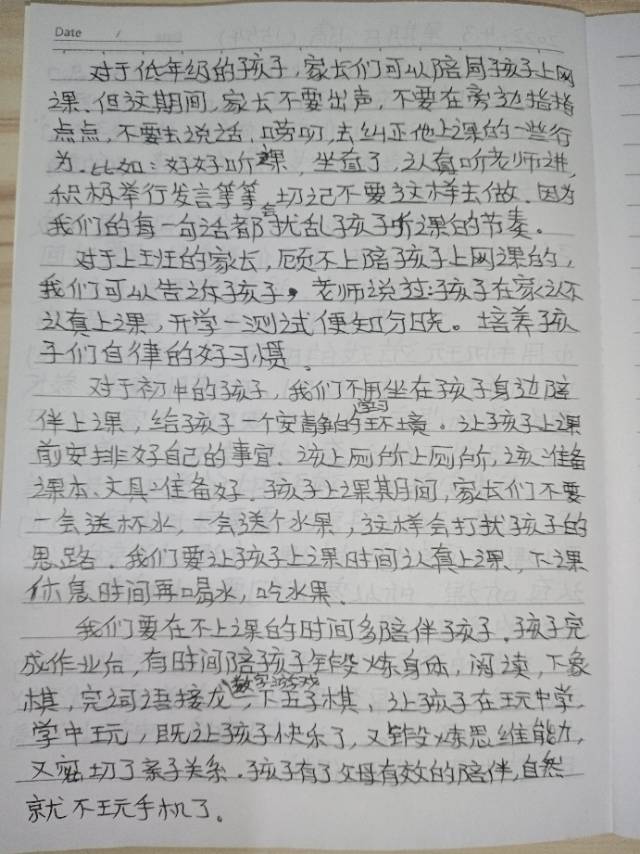 Date
对于低年级的孩子,家长们可以陪同孩子上网
课、但这期间,家长不要出声,不要在旁边指指
点点,不要去说话,唠叨,去纠正他上课的一些行
为.比如:好好听课,坐直了,认真听老师讲,
积极举行发言等等,切记不要这样去做.因为
我们的每一句话都会扰乱孩子听课的节奏。
对于上班的家长,顾不上陪孩子上网课的,
我们可以告诉孩子,老师说过:孩子在家认不
认真上课,开学一测试便知分晓。培养孩
子们自律的好习惯.
对于初中的孩子,我们不用坐在孩子身边陪
伴上课,给孩子一个安静的学习环境。让孩子上课
前安排好自己的事宜.该上厕所上厕所,该准备
课本、文具准备好.孩子上课期间,家长们不要
一会送杯水,一会送个水果,这样会打扰孩子的
思路.我们要让孩子上课时间认真上课,下课
休息时间再喝水,吃水果.
我们要在不上课的时间多陪伴孩子.孩子完
成作业后,有时间陪孩子锻炼身体,阅读,下象
棋,完词语接龙,数字游戏,下五子棋、让孩子在玩中学,
学中玩,既让孩子快乐了,又锻炼思维能力,
又密切了亲子关系.孩子有了父母有效的陪伴,自然
就不玩手机了。